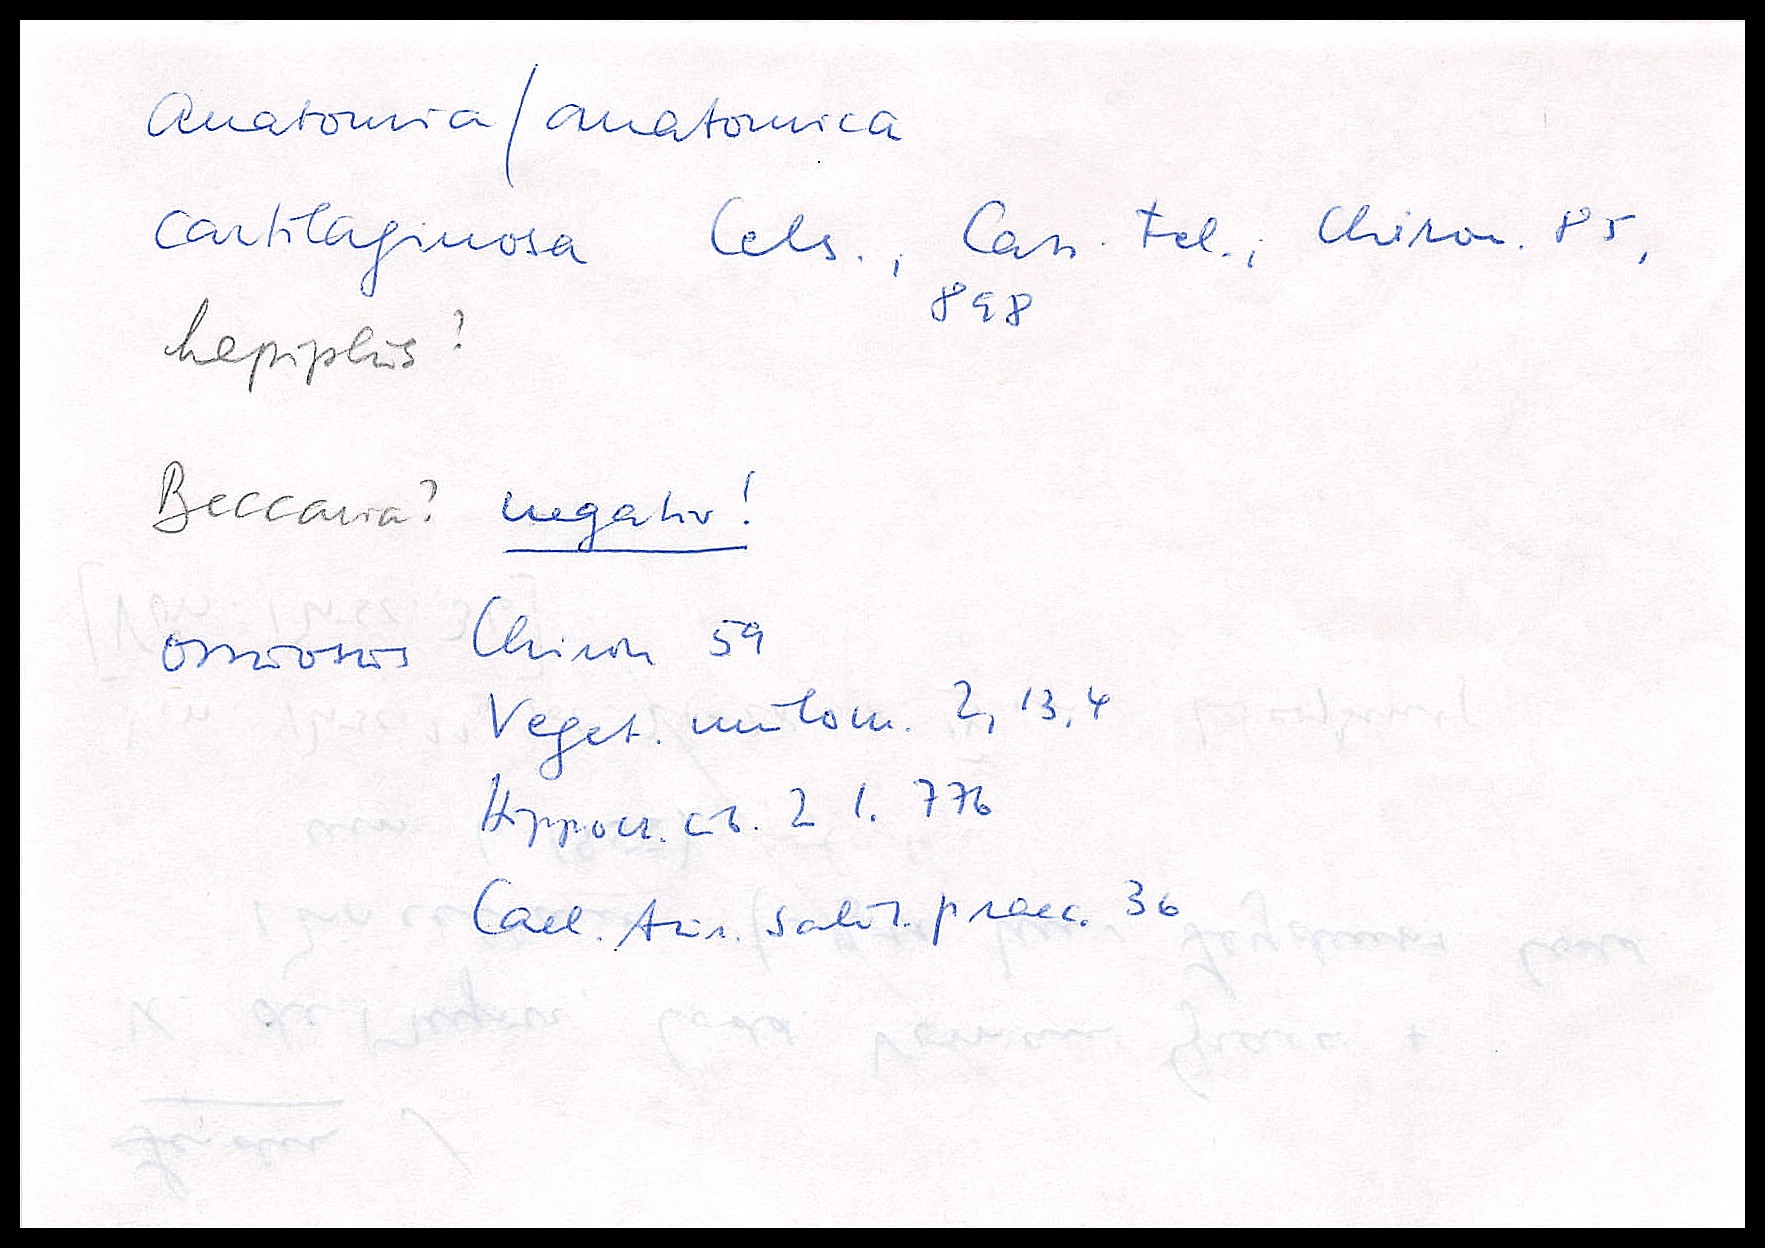 Anatomia / anatomica
cartilaginosa Cels., Cass. Fel., Chiron. 85,
898
Beccaria? negativ!
Chiron 59
Veget. mulom. 2, 13, 4
Hippocr. 2 l. 776
Cael. Aur. salut. praec. 36